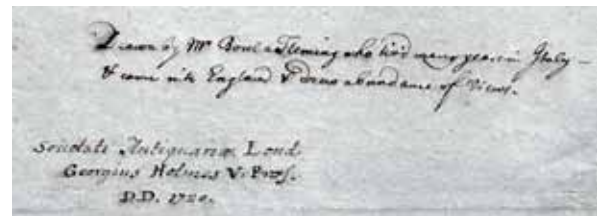 Drawn by Mr Boul a Fleming who liv'd many years in Italy –
& came into England & drew abundance of Views.
Societati Antiquariæ Lond.
Georgius Holmes V. Præs.
D.D. 1720.